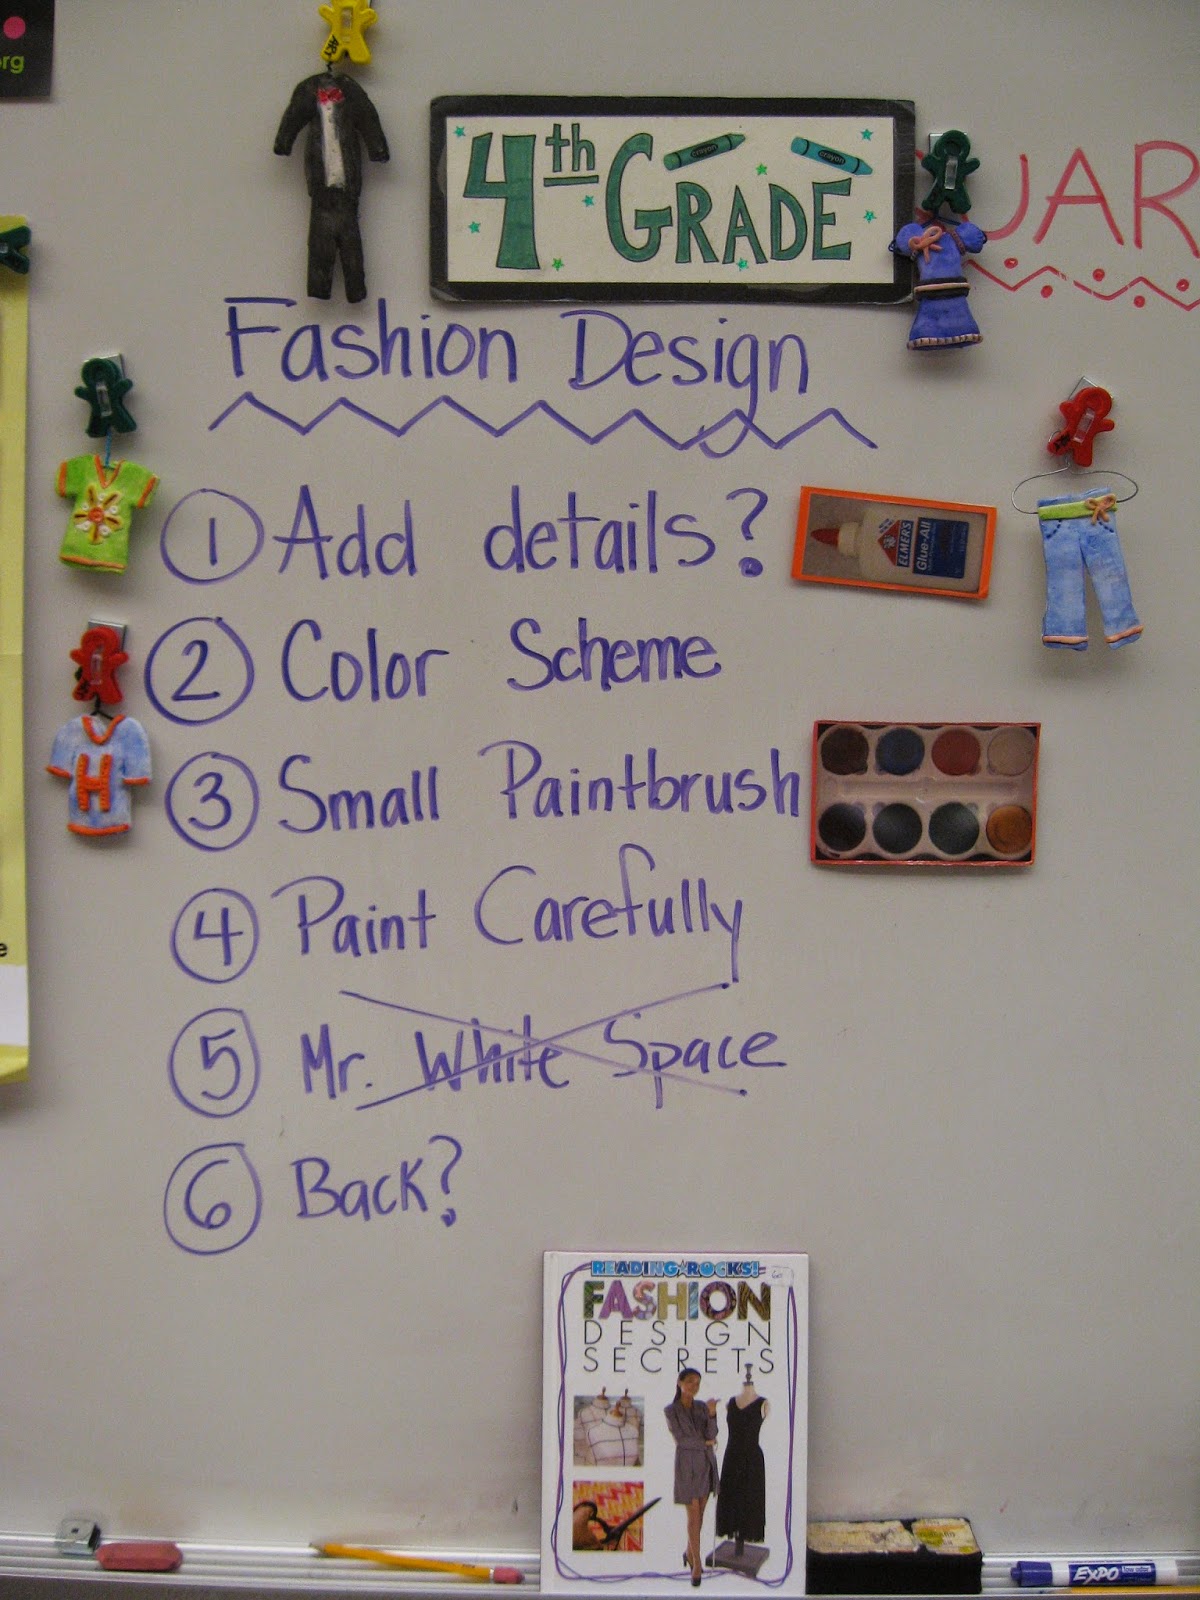 rg
ART
4th GRADE
crayon
crayon
UAR
Fashion Design
1 Add details?
ELMER'S
Glue-All
ART
2 Color Scheme
H
3 Small Paintbrush
4 Paint Carefully
e
5 Mr. White Space
6 Back?
READING ROCKS!
FASHION
DESIGN
SECRETS
EXPO
low odor